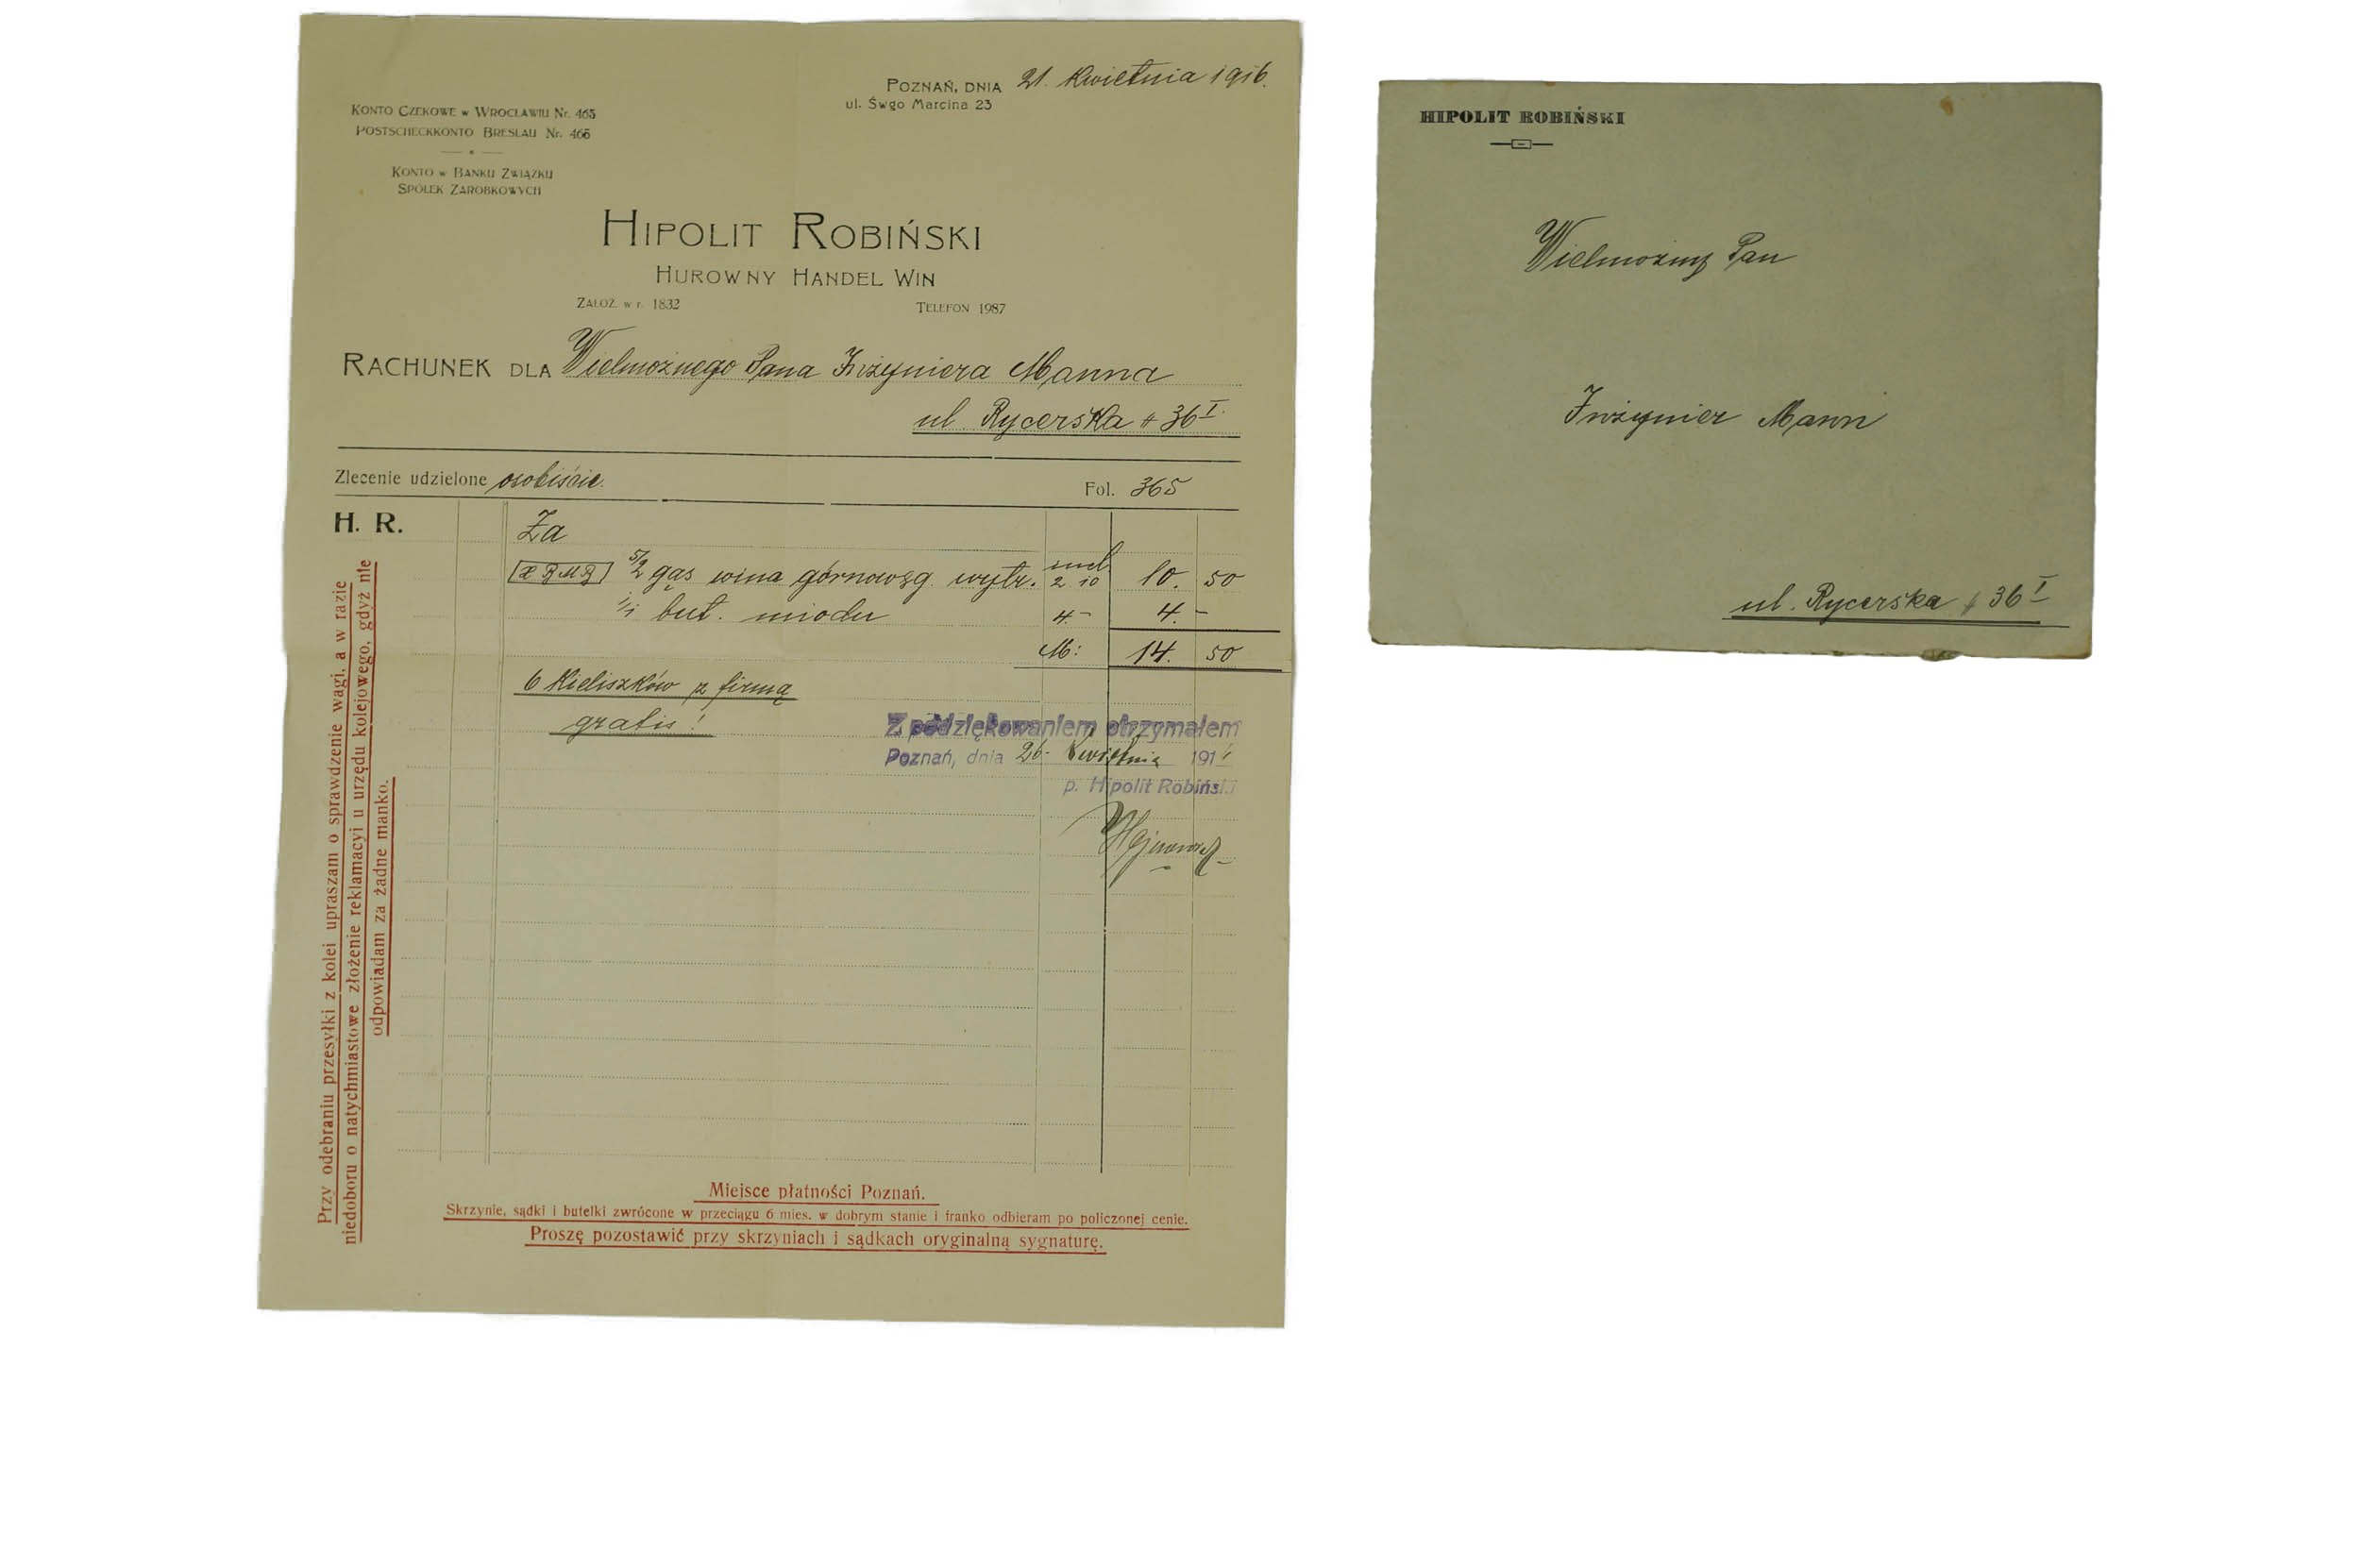 POZNAŃ, DNIA 21. Kwietnia 1916.
ul. Śwgo Marcina 23
KONTO CZEKOWE w WROCŁAWIU Nr. 465
POSTSCHECKKONTO BRESLAU Nr. 465
KONTO w BANKU ZWIĄZKU
SPÓŁEK ZAROBKOWYCH
HIPOLIT ROBIŃSKI
HUROWNY HANDEL WIN
ZAŁOŻ. w r. 1832 TELEFON 1987
RACHUNEK DLA Wielmożnego Pana Inżyniera Manna
ul. Rycerska # 36 I.
Zlecenie udzielone osobiście. Fol. 365
H. R.
Za
5/2 gąs wina górnowęg. wytr. incl. 2 10 10. 50
1/1 but. miodu 4.- 4.-
M: 14. 50
6 Kieliszków z firmą
gratis!
Z podziękowaniem otrzymałem
Poznań, dnia 26. Kwietnia 191
p. Hipolit Robiński
Przy odebraniu przesyłki z kolei upraszam o sprawdzenie wagi, a w razie
niedoboru o natychmiastowe złożenie reklamacyi u urzędu kolejowego, gdyż nie
odpowiadam za żadne manko.
Miejsce płatności Poznań.
Skrzynie, sądki i butelki zwrócone w przeciągu 6 mies. w dobrym stanie i franko odbieram po policzonej cenie.
Proszę pozostawić przy skrzyniach i sądkach oryginalną sygnaturę.
HIPOLIT ROBIŃSKI
Wielmożny Pan
Inżynier Mann
ul. Rycerska # 36 I